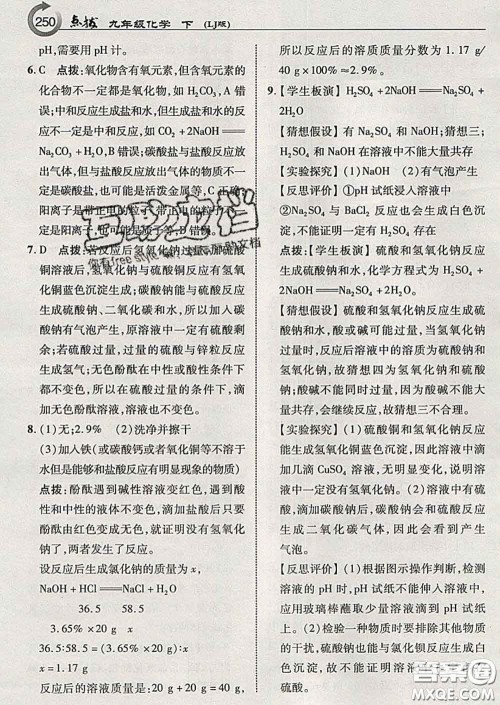 250 点拨 九年级化学 下 (LJ版)
pH,需要用 pH 计。
6. C 点拨:氧化物含有氧元素,但含氧元素的
化合物不一定都是氧化物,如 H₂CO₃,A 错
误;中和反应生成盐和水,但生成盐和水的反
应不一定是中和反应,如 CO₂+2NaOH══
Na₂CO₃+H₂O,B 错误;碳酸盐与盐酸反应放
出气体,但与盐酸反应放出气体的物质不一
定是碳酸盐,也可能是活泼金属等,C 正确;
阳离子是带正电的粒子,带正电的粒子不一
定是阳离子,也可能是质子等,D 错误。
7. D 点拨:
铜溶液后,氢氧化钠与硫酸铜反应有氢氧
化铜蓝色沉淀生成,碳酸钠与硫酸反应
生成硫酸钠、二氧化碳和水,所以碳酸钠
中有气泡产生,原溶液中一定有硫酸剩
余;若硫酸过量,过量的硫酸与锌粒反应
生成氢气;无色酚酞在酸性和中性条件下
都不变色,所以在硫酸过量的条件下,滴
入无色酚酞溶液,溶液也不变色。
8. (1)无;2.9% (2)洗净并擦干
(3)加入铁(或碳酸钙或者氧化铜等不溶于
水但是能够和盐酸反应有明显现象的物质)
点拨:酚酞遇到碱性溶液变红色,遇到酸
性和中性的液体不变色,如果溶液滴加
酚酞由红色变成无色,就证明没有氢氧化
钠了,两者发生了反应。
设反应后生成氯化钠的质量为 x,
NaOH+HCl══NaCl+H₂O
36.5 58.5
3.65%×20 g x
36.5:58.5=(3.65%×20 g):x
x=1.17 g
反应后的溶液质量是:20 g+20 g=40 g,
所以反应后的溶质质量分数为 1.17 g/
40 g×100%≈2.9%。
9. 【学生板演】H₂SO₄+2NaOH══Na₂SO₄+
2H₂O
【猜想假设】有 Na₂SO₄ 和 NaOH;猜想三;
H₂SO₄ 和 NaOH 在溶液中不能大量共存
【实验探究】(1)NaOH (2)有气泡产生
【反思评价】①pH 试纸浸入溶液中
②Na₂SO₄ 与 BaCl₂ 反应也会生成白色沉
淀,不能证明一定有 H₂SO₄ 存在
点拨:【学生板演】硫酸和氢氧化钠反应生
成硫酸钠和水,化学方程式为 H₂SO₄+
2NaOH══Na₂SO₄+2H₂O。
【猜想假设】硫酸和氢氧化钠反应生成硫
酸钠和水,酸或碱可能过量,当氢氧化钠
过量时,反应后溶液中的溶质有氢氧化
钠,故猜想四为氢氧化钠和硫酸钠;氢氧化
钠、硫酸不能大量共存,若有大量共存,就
会继续反应,故猜想三不成立。
【实验探究】(1)硫酸铜溶液和氢氧化钠反
应能生成氢氧化铜蓝色沉淀,因此当滴加
CuSO₄ 溶液,无明显现象,则说明不含有
氢氧化钠。(2)溶液中含有硫酸,滴加碳
酸钠后,碳酸钠和硫酸会反应
生成二氧化碳气体,因此会看到产生
气泡。
【反思评价】(1)根据图示操作判断,检测溶
液的 pH 时,pH 试纸不能伸入溶液中,应用
玻璃棒蘸取少量溶液滴到 pH 试纸上测定。
(2)检验一种物质时要排除其他物质的干
扰,因为猜想中含有硫酸钠,硫酸钠和氯
化钡反应也会生成白色沉淀,不一定是
硫酸。